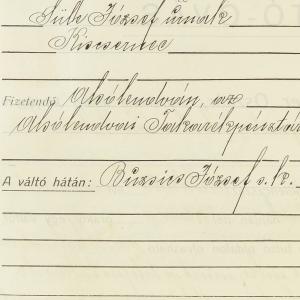 Süle József úrnak
Kiscsernec
Fizetendő Alsólendván, az
Alsólendvai Takarékpénztár
A váltó hátán: Buzsics József s. k.